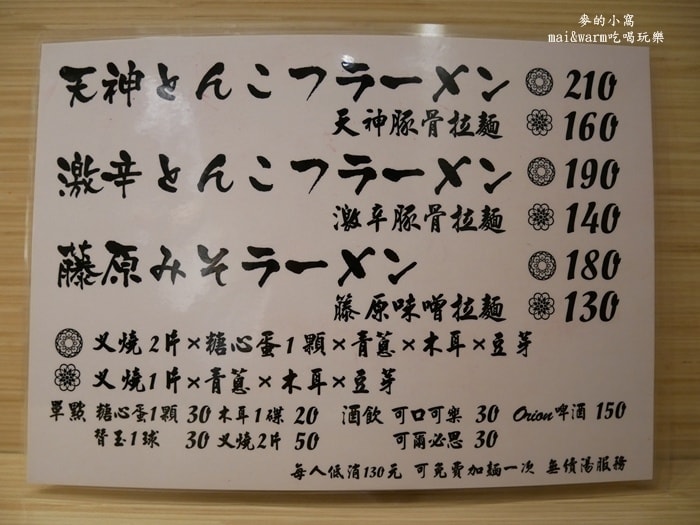 麥的小窩
mai&warm吃喝玩樂
天神とんこつラーメン 210
天神豚骨拉麵 160
激辛とんこつラーメン 190
激辛豚骨拉麵 140
藤原みそラーメン 180
藤原味噌拉麵 130
叉燒2片×糖心蛋1顆×青蔥×木耳×豆芽
叉燒1片×青蔥×木耳×豆芽
單點 糖心蛋1顆 30 木耳1碟 20 酒飲 可口可樂 30 Orion啤酒 150
替玉1球 30 叉燒2片 50 可爾必思 30
每人低消130元 可免費加麵一次 無續湯服務